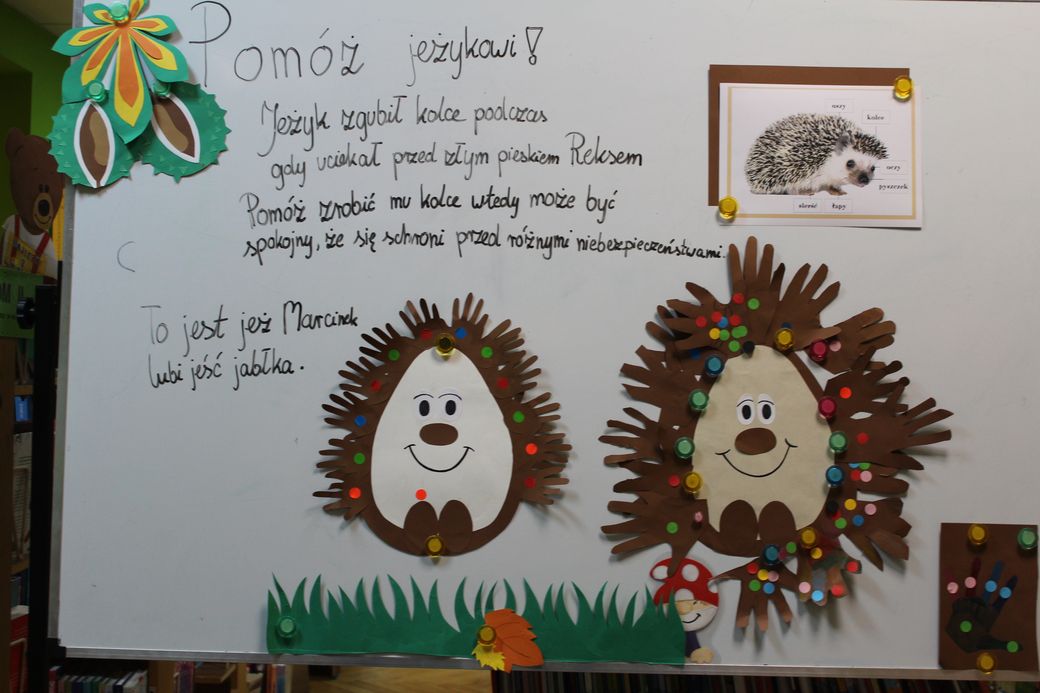 Pomóż jeżykowi!
Jeżyk zgubił kolce podczas
gdy uciekał przed złym pieskiem Reksem
Pomóż zrobić mu kolce wtedy może być
spokojny, że się schroni przed różnymi niebezpieczeństwami.
To jest jeż Marcinek
lubi jeść jabłka.
uszy
kolce
oczy
pyszczek
sierść
łapy